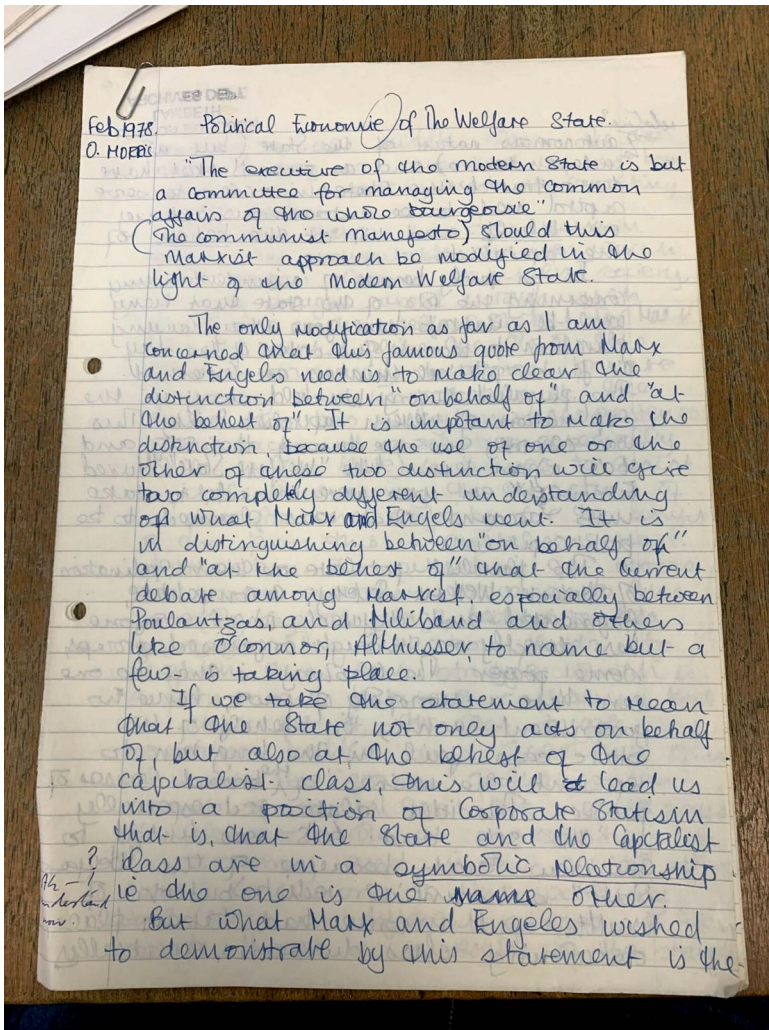 Feb 1978. Political Economie of The Welfare State.
O. MORRIS
"The executive of the modern State is but
a committee for managing the common
affairs of the whole bourgeoisie"
(The communist Manefesto) Should this
Marxist approach be modified in the
light of the Modern Welfare State.
The only modification as far as I am
concerned that this famous quote from Marx
and Engels need is to make clear the
distinction between "on behalf of" and "at
the behest of". It is important to make the
distinction, because the use of one or the
other of these two distinction will give
two completely different understanding
of what Marx and Engels ment. It is
in distinguishing between "on behalf of"
and "at the behest of" that the current
debate among Marxist, especially between
Poulantzas, and Miliband and others
like O'Connor, Althusser, to name but a
few- is taking place.
If we take the statement to mean
that the State not only acts on behalf
of, but also at, the behest of the
capitalist class, this will lead us
into a position of Corporate Statism
that is, that the State and the Capitalist
Class are in a symbolic relationship
?
ie the one is the other.
Ah – I
understand
now.
But what Marx and Engeles wished
to demonstrate by this statement is the